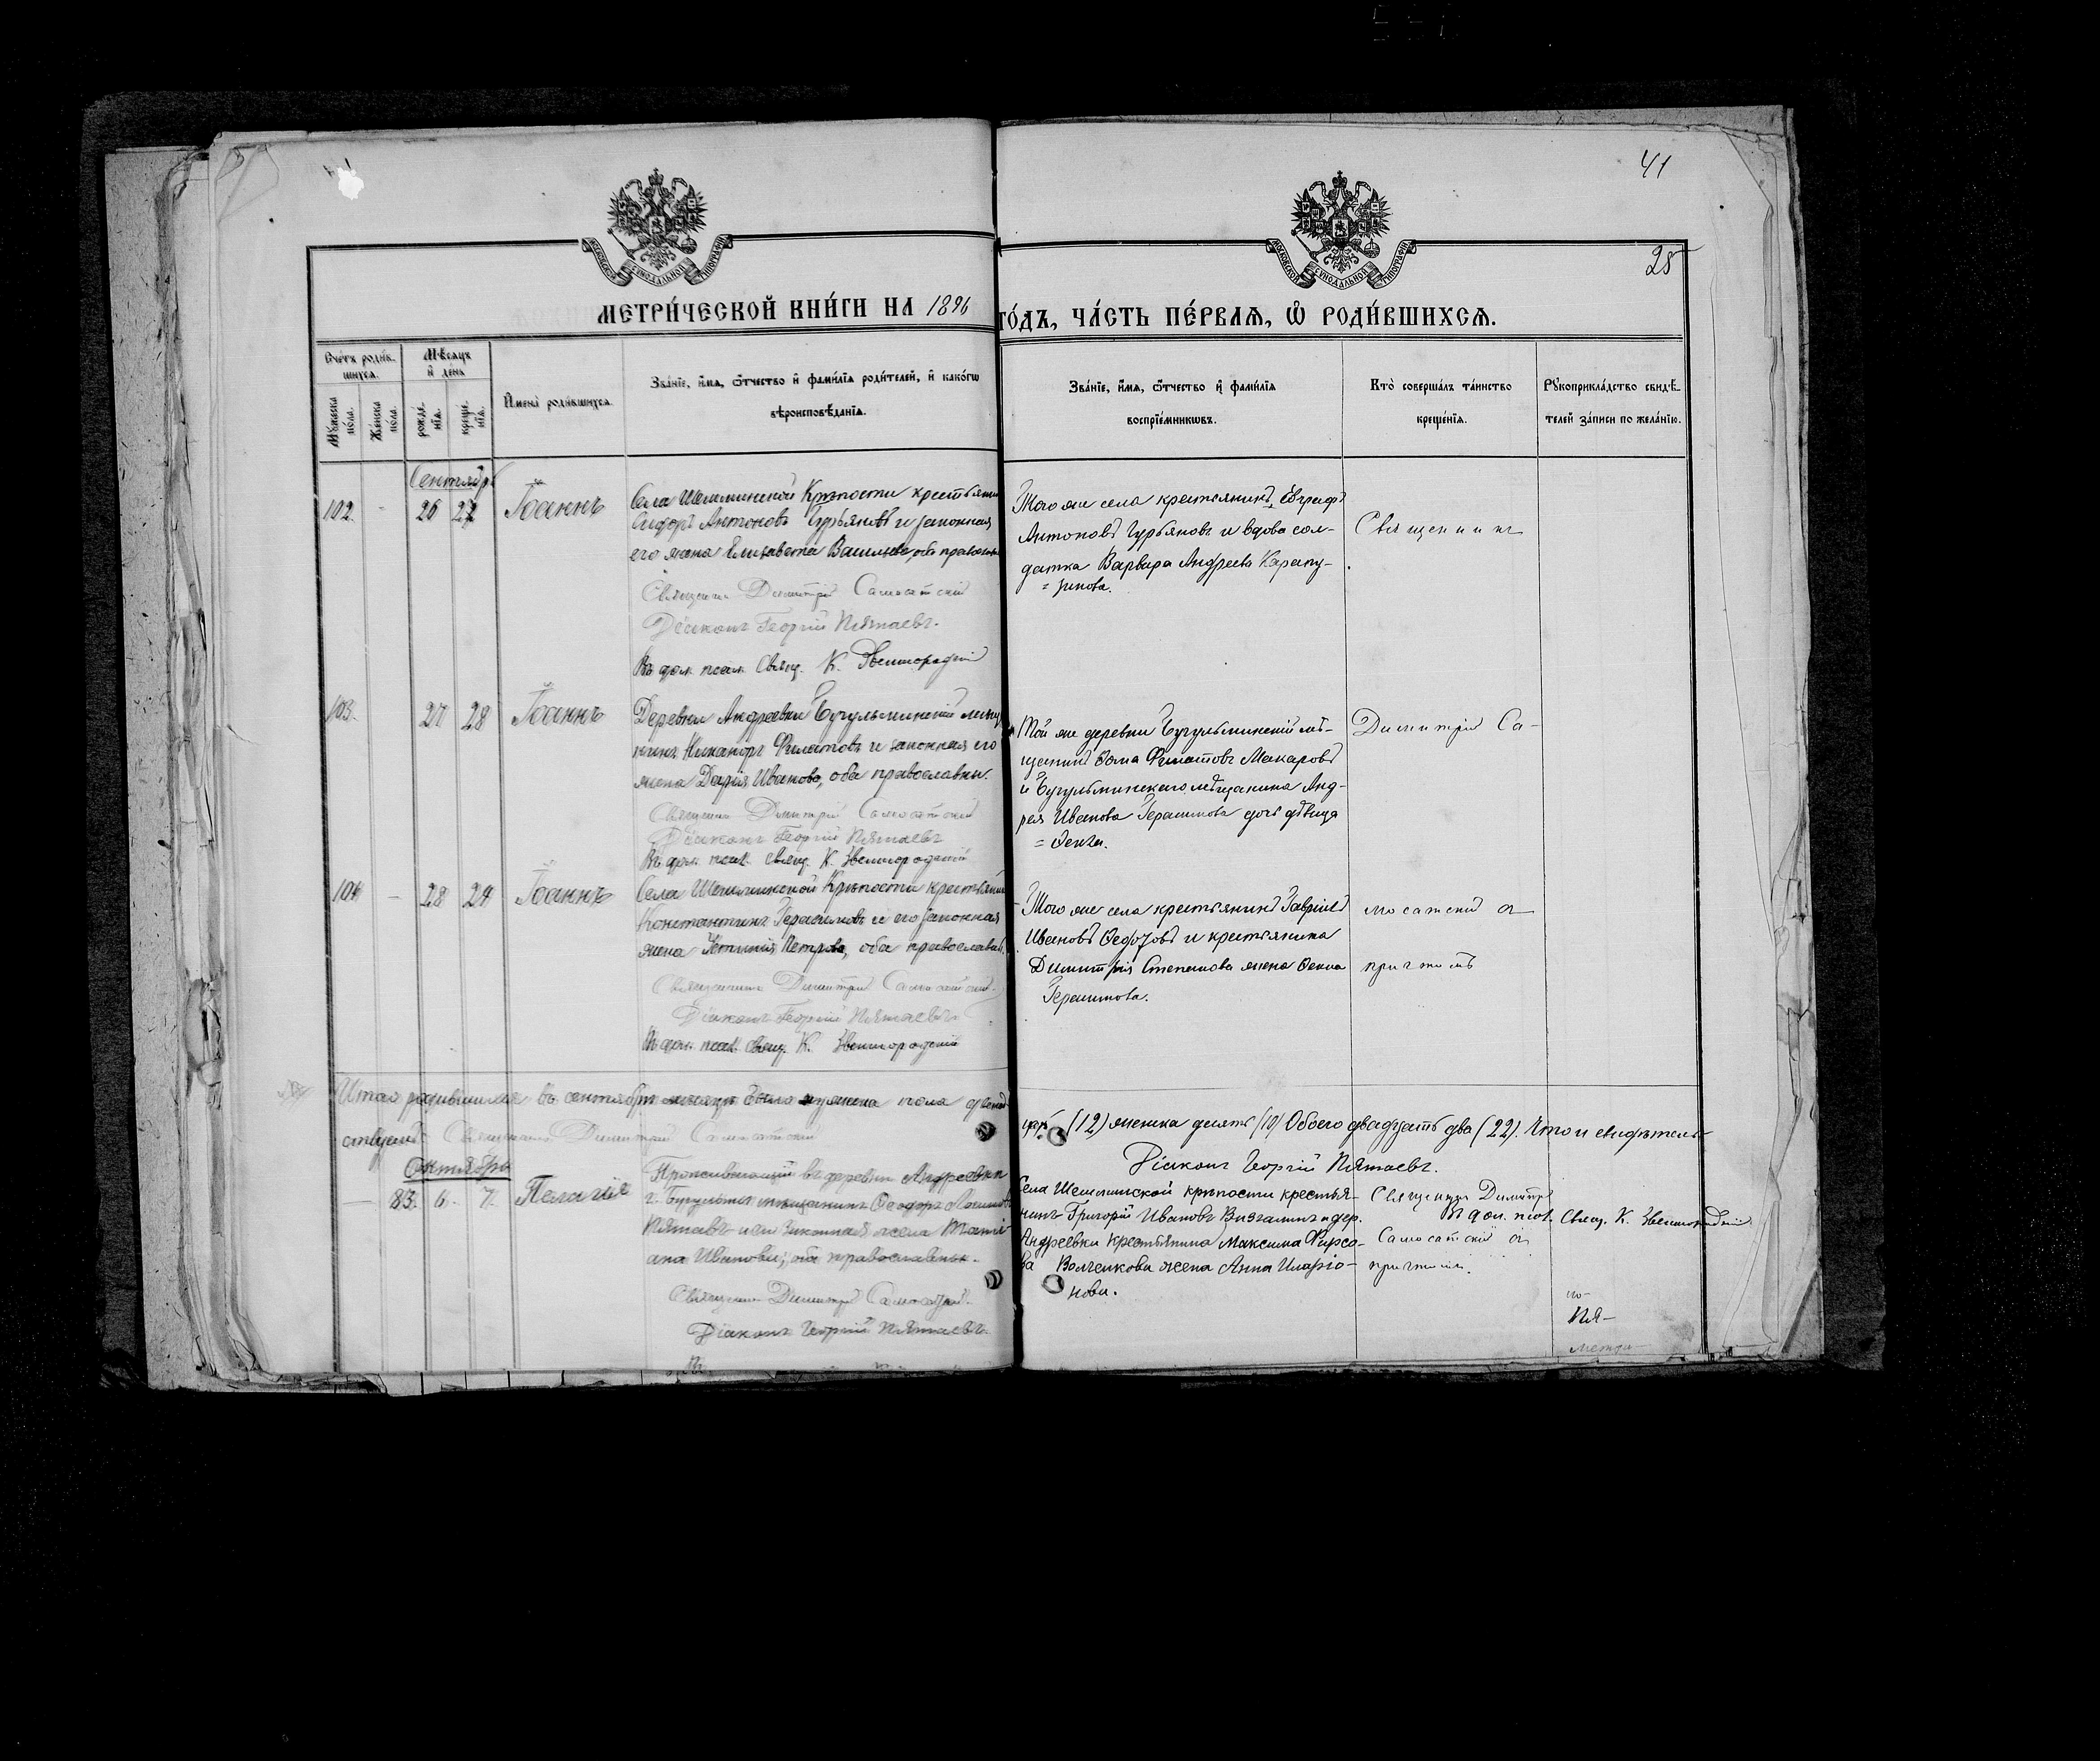 41
28
МОСКОВСКОЙ СѴНОДАЛЬНОЙ ТИПОГРАФІИ
МОСКОВСКОЙ СѴНОДАЛЬНОЙ ТИПОГРАФІИ
МЕТРИ́ЧЕСКОЙ КНИ́ГИ НА 1896
ГО́ДЪ, ЧА́СТЬ ПЕ́РВАЯ, Ѡ РОДИ́ВШИХСЯ.
Сче́тъ роди́в-
шихся.
Мѣсяцъ
и де́нь
Му́жеска по́ла.
Же́нска по́ла.
рожде́-
нія.
креще́-
нія.
Имена̀ роди́вшихся.
Зва́ніе, и́мя, ѻ́тчество и фами́лія роди́телей, и како́гѡ
вѣроисповѣ́данія.
Зва́ніе, и́мя, ѻ́тчество и фами́лія
воспріе́мникѡвъ.
Кто̀ соверша́лъ та́инство
креще́нія.
Рукоприкла́дство свидѣ́-
телей за́писи по жела́нію.
Сентябр
102. - 26 27 Іоаннъ
Села Шешминской Крѣпости крестьянин
Сидоръ Антоновъ Гурьяновъ и законная
его жена Елизавета Васильева, оба православ
Священ Димитрій Самосатскій
Діаконъ Георгій Пятаевъ.
Въ дол. псал. Свящ. К. Звенигородскій
Того же села крестьянинъ Евграфъ
Антоновъ Гурьяновъ и вдова сол-
датка Варвара Андреева Карапу-
= зикова.
Священникъ
103. 27 28 Іоаннъ
Деревни Андреевки Бугульминскій мѣщ
нинъ Никаноръ Филатовъ и законная его
жена Дарія Иванова, оба православны.
Священ Димитрій Самосатскій
Діаконъ Георгій Пятаевъ
Въ дол. псал. Свящ. К. Звенигородскій
Той же деревни Бугульминскій мѣ-
щанинъ Ѳома Филатовъ Макаровъ
и Бугульминскаго мѣщанина Анд-
рея Иванова Герасимова дочь дѣвица
= Ѳекла.
Димитрій Са-
104 - 28 29 Іоаннъ
Села Шешминской Крѣпости крестьянин
Константинъ Герасимовъ и его законная
жена Устинія Петрова, оба православн.
Священникъ Димитрій Самосатскій.
Діаконъ Георгій Пятаевъ
Въ дол. псал. Свящ. К. Звенигородскій
Того же села крестьянинъ Гавріилъ
Ивановъ Ѳедотовъ и крестьянина
Димитрія Степанова жена Ѳекла
Герасимова.
мосатскій съ
причтомъ
Итого родившихся въ сентябрѣ мѣсяцѣ было мужска пола двенад
цать (12) женска десять (10) Обоего двадцать два (22). Что и свидѣтель-
ствуемъ Священникъ Димитрій Самосатскій
Діаконъ Георгій Пятаевъ.
Въ дол. псал. Свящ. К. Звенигородскій
Октябрь
- 83. 6. 7. Пелагія
Проживающій въ деревнѣ Андреевкѣ
г. Бугульмы мѣщанинъ Ѳеодоръ
Пятаевъ и его законная жена Тати-
ана Иванова; оба православные.
Священ Димитрій Самосатскій.
Діаконъ Георгій Пятаевъ.
Въ
Села Шешминской крѣпости крестья-
нинъ Григорій Ивановъ Визгалинъ и дер.
Андреевки крестьянина Максима Фирсо-
ва Волченкова жена Анна Иларіо-
нова.
Священникъ Димитрій
Самосатскій съ
причтомъ.
по-
Пя-